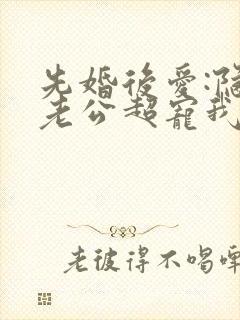 先婚後愛:隔
老公超寵我
老彼得不喝啤